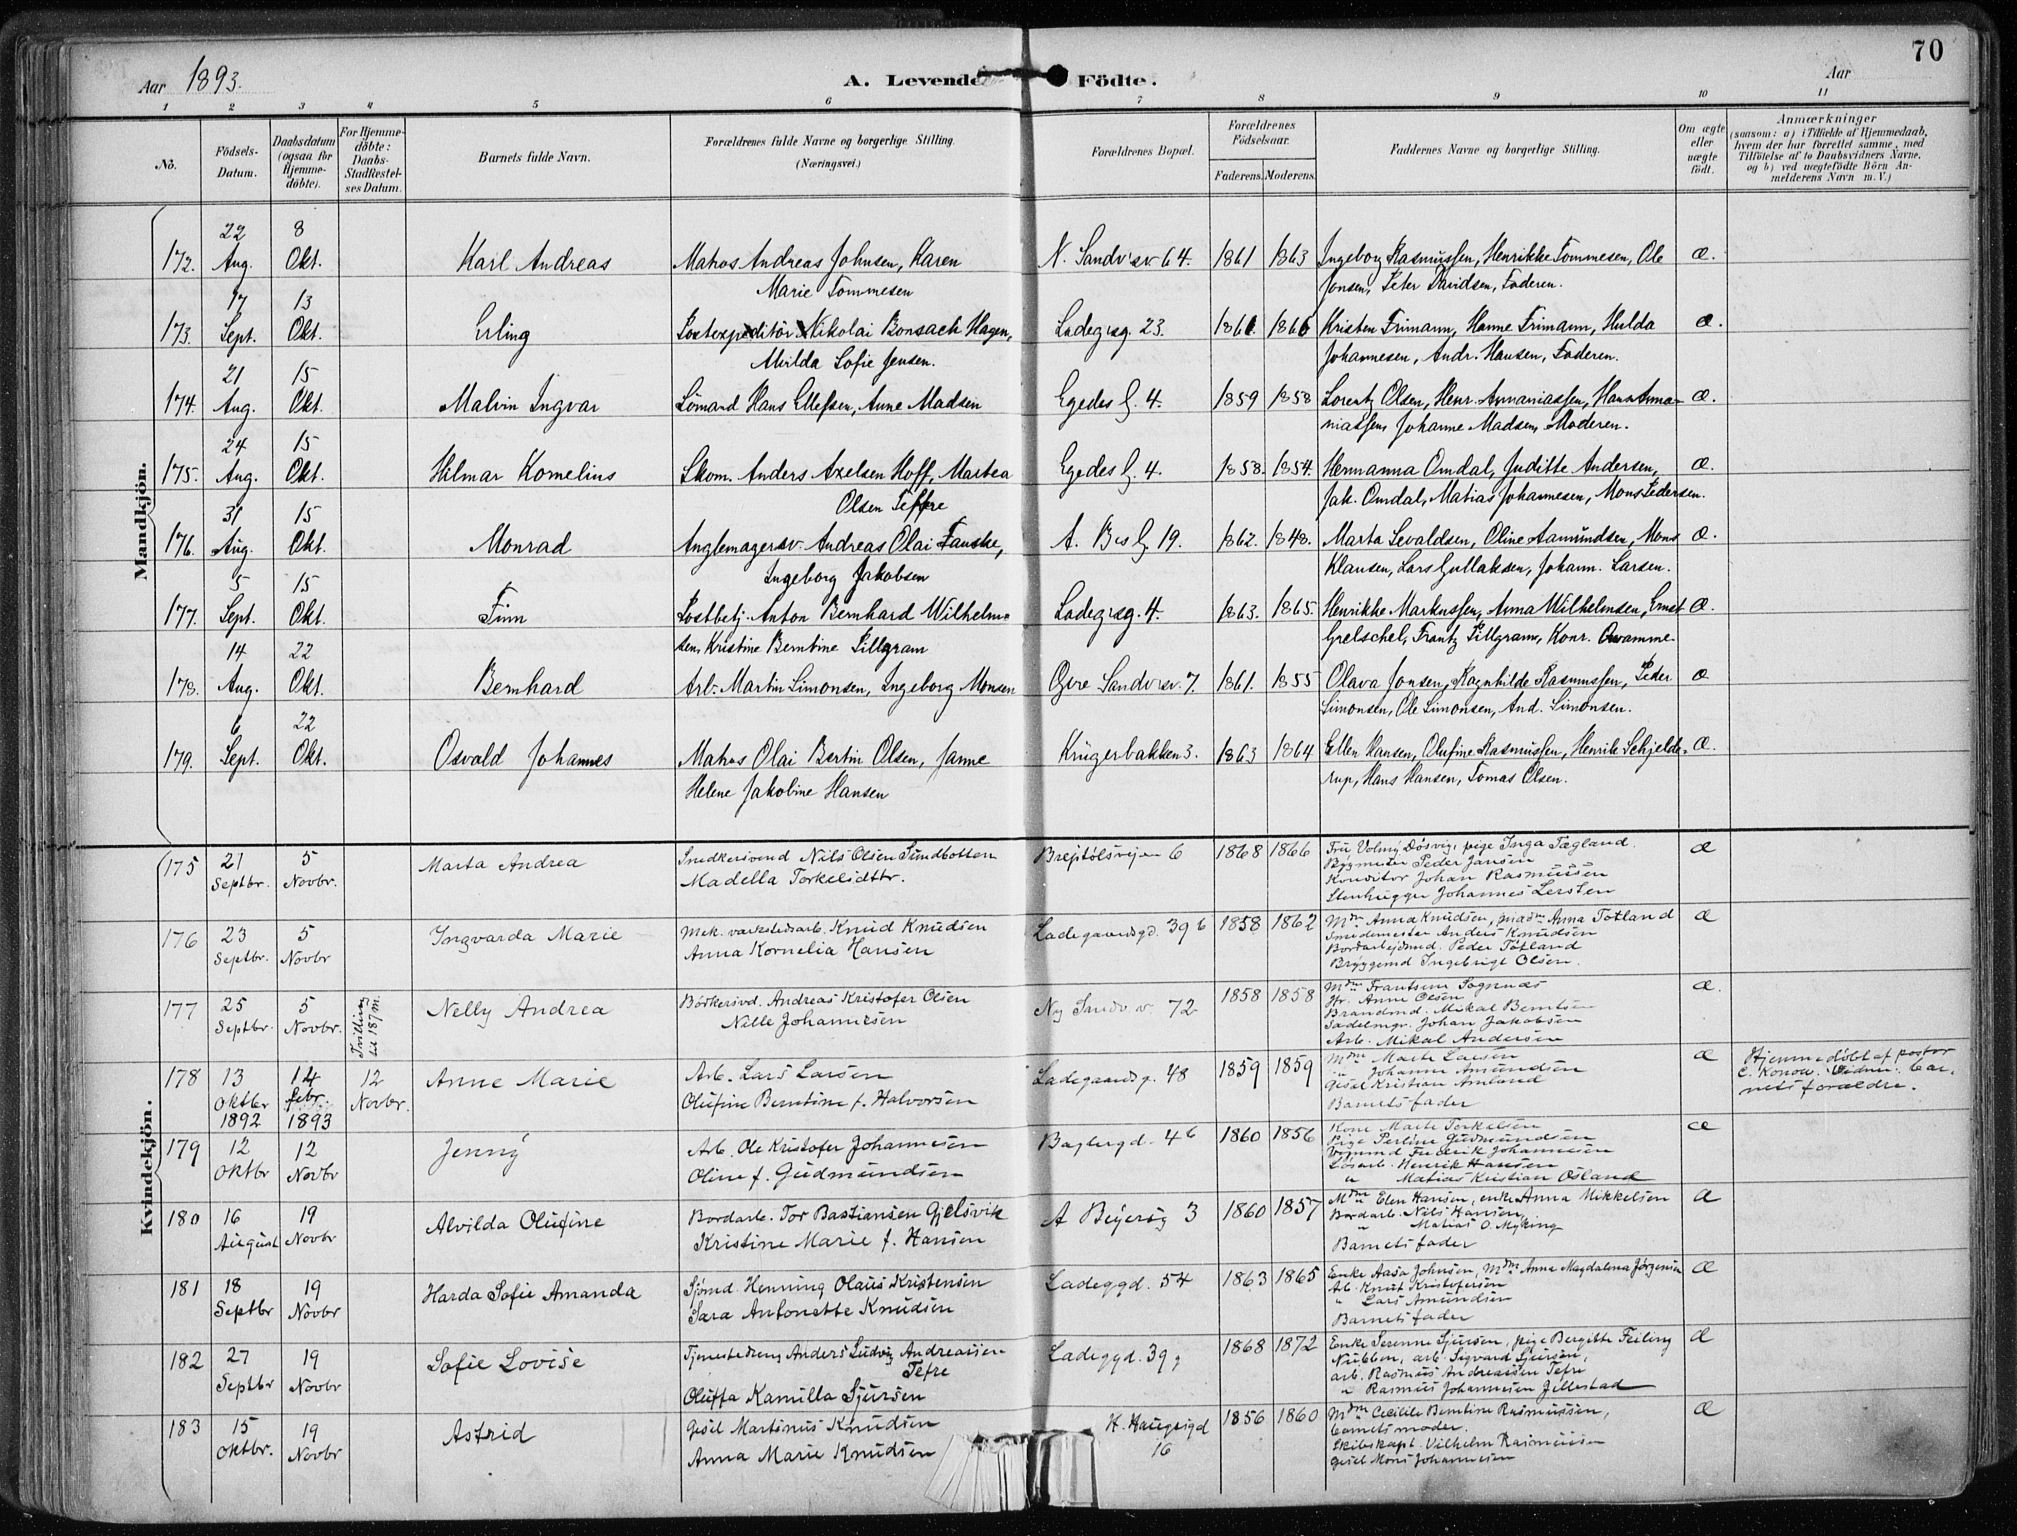 70
Aar 1893.
A. Levende Födte.
Aar
1 2 3 4 5 6 7 8 9 10 11
No.
Födsels-Datum.
Daabsdatum (ogsaa for Hjemme-döbte).
For Hjemme-döbte: Daabs-Stadfæstel-ses Datum.
Barnets fulde Navn.
Forældrenes fulde Navne og borgerlige Stilling.
(Næringsvei.)
Forældrenes Bopæl.
Forældrenes Födselsaar.
Faderens. Moderens.
Faddernes Navne og borgerlige Stilling.
Om ægte eller uægte födt.
Anmærkninger
(saasom: a) i Tilfælde af Hjemmedaab, hvem der har forrettet samme, med Tilföielse af to Daabsvidners Navne, og b) ved uægtefödte Börn An-melderens Navn m. V.)
Mandkjön.
172. 22 Aug. 8 Okt. Karl Andreas Matros Andreas Johnsen, Karen N. Sandv'sv 64. 1861 1863 Ingeborg Rasmussen, Henrikke Tommesen, Ole æ.
Marie Tommesen Jonsen, Peter Davidsen, Faderen.
173. 17 Sept. 13 Okt. Erling Postexpeditör Nikolai Bonsach Hagen, Ladegrsg. 23. 1861 1866 Kristen Frimann, Hanne Frimann, Hulda æ.
Mirlda Sofie Jensen. Johannesen, Andr. Hansen, Faderen.
174. 21 Aug. 15 Okt. Malvin Ingvar Sömand Hans Ellefsen, Anne Madsen Egedes G. 4. 1859 1858 Lorentz Olsen, Henr. Annaniassen, Hans Anna- æ.
niassen, Johanne Madsen, Moderen.
175. 24 Aug. 15 Okt. Hilmar Kornelius Skom. Anders Axelsen Hoff, Martea Egedes G. 4. 1858. 1854. Hermanna Omdal, Juditte Andersen, æ.
Olsen Teffre Jak. Omdal, Matias Johannesen, Mons Pedersen.
176. 31 Aug. 15 Okt. Monrad Anglemagersv. Andreas Olai Fauske, A. Bes G 19. 1862. 1848. Marta Sevaldsen, Oline Aamundsen, Mons æ.
Ingeborg Jakobsen Klausen, Lars Gullaksen, Johann. Larsen.
177. 5 Sept. 15 Okt. Finn Postbetj. Anton Bernhard Wilhelm- Ladegrsg. 4. 1863. 1865. Henrikke Markussen, Anna Wilhelmsen, Ernst æ.
sen, Kristine Berntine Pillgram Gretschel, Frantz Pillgram, Konr. Owamme.
178. 14 Aug. 22 Okt. Bernhard Arb. Martin Simonsen, Ingeborg Monsen Övre Sandv'sv. 7. 1861. 1855 Olava Jonsen, Ragnhilde Rasmussen, Peder æ
Simonsen, Ole Simonsen, And. Simonsen.
179. 6 Sept. 22 Okt. Osvald Johannes Matros Olai Bertin Olsen, Janne Krügerbakken 3. 1863 1864 Ellen Hansen, Olufine Rasmussen, Henrik Schjelde- æ.
Helene Jakobine Hansen rup, Hans Hansen, Tomas Olsen.
Kvindekjön.
175 21 Septbr. 5 Novbr. Marta Andrea Snedkersvend Nils Olsen Sundbotten Breistölsvejen 6 1868 1866 Fru Volny Dösvig, pige Inga Tægland. æ
Madella Torkelsdttr. Bygmester Peder Jansen
Konditor Johan Rasmussen
Stenhugger Johannes Lersten
176 23 Septbr. 5 Novbr Ingvarda Marie Mek. værkstedsarb. Knud Knudsen Ladegaardsgd. 39 b 1858 1862 Mdm Anna Knudsen, madm Anna Totland æ
Anna Kornelia Hansen Smedemester Anders Knudsen
Bordarbejdsmd. Peder Totland
Bryggemd Ingebrigt Olsen.
177 25 Septbr 5 Novbr. Tvilling til 187 m. Nelly Andrea Bödkersvd. Andreas Kristofer Olsen Ny Sandv. v. 72 1858 1858 Mdm Frantsen Sognnæs æ.
Nille Johannesen Fr. Anne Olsen
Brandmd. Mikal Berntsen
Sadelmgr. Johan Jakobsen
Arb. Mikal Andersen
178 13 Oktbr 1892 14 febr. 1893 12 Novbr. Anne Marie Arb. Lars Larsen Ladegaardsg. 48 1859 1859 Mdm Marte Larsen æ Hjemmedöbt af pastor
Olufine Berntine f. Halvorsen " Johanne Amundsen C. Konow. Vidner: bar-
Gesel Kristian Amland nets forældre.
Barnets fader
179 12 Oktbr 12 Novbr Jenny Arb. Ole Kristofer Johannesen Baglergd. 4 b 1860 1856 Kone Marte Torkelsen æ
Oline f. Gudmundsen Pige Perline Gudmundsen
Vognmd Frederik Johannesen
Lösarb. Henrik Hansen
" Matias Kristian Osland
180 16 August 19 Novbr Alvilda Olufine Bordarb. Tor Bastiansen Gjelsvik A Beyersg 3 1860 1857 Mdm Elen Hansen, enke Anna Mikkelsen æ
Kristine Marie f. Hansen Bordarb. Nils Hansen,
" Matias O. Myking
Barnets fader
181 18 Septbr 19 Novbr Harda Sofie Amanda Sjömd. Henning Olaus Kristensen Ladeggd. 54 1863 1865 Enke Aasa Johnsen, Mdm Anna Magdalena Jörgensen æ
Sara Antonette Knudsen Arb. Knut Kristofersen
" Lars Amundsen
Barnets fader
182 27 Septbr 19 Novbr Sofie Lovise Tjenestedreng Anders Ludvig Andreassen Ladeggd. 39 g 1868 1872 Enke Serenne Sjursen, pige Bergitte Feiling æ
Tefre Nubben, arb. Sigvard Sjursen,
Oluffa Kamilla Sjursen arb. Rasmus Andreassen Tefre
" Rasmus Johannesen Jillestad
183 15 Oktbr. 19 Novbr Astrid Gesel Martinus Knudsen H. Haugesgd 16 1856 1860 Mdm Cecilie Berntine Rasmussen, æ
Anna Marie Knudsen barnets moder.
Skibskapt. Vilhelm Rasmussen
Gesel Mons Johannesen